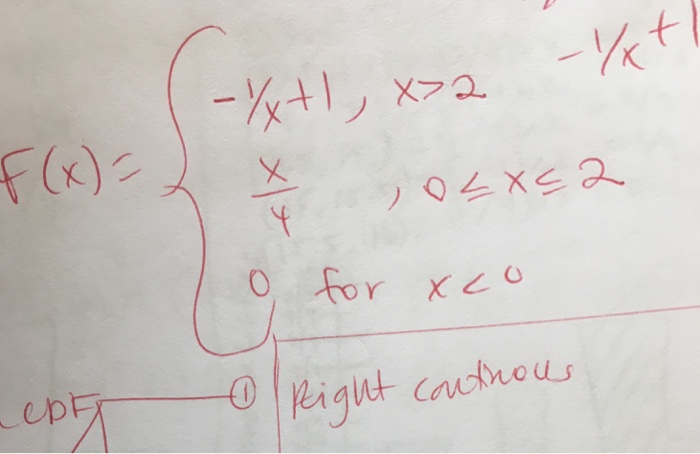 -1/x+1
-1/x+1, x>2
F(x)=
x/4 , 0≤x≤2
0 for x<0
CDF ① Right continous